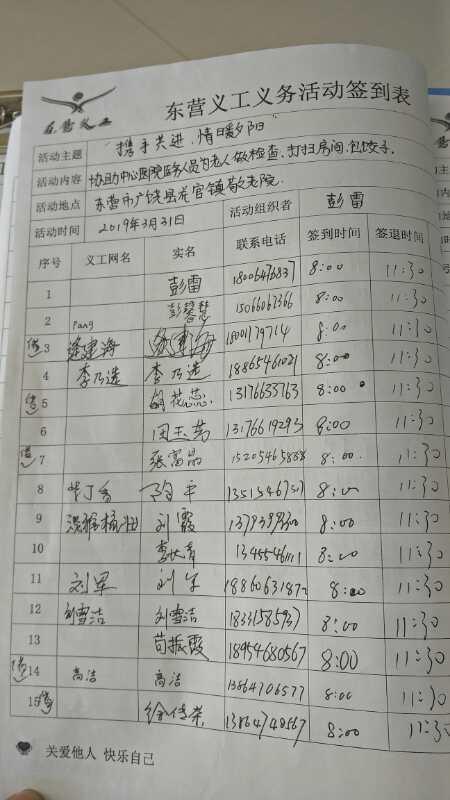 东营义工义务活动签到表
东营义工
活动主题 "携手共进,情日暖夕阳"
活动内容 协助中心医院医务人员为老人做检查、打扫房间、包饺子.
活动地点 东营市广饶县花官镇敬老院.
活动时间 2019年3月31日 活动组织者 彭雷
序号 义工网名 实名 联系电话 签到时间 签退时间
1 彭雷 8:00 11:30
2 Pang 彭馨慧 15066067366 8:00 11:30
3 逄建海 逄建海 18001179714 8:00 11:30
4 李乃选 李乃选 18865461021 8:00 11:30
5 胡花蕊 13176633763 8:00 11:30
6 田玉芳 13176619293 8:00 11:30
7 张富晶 15205465888 8:00 11:30
8 8:00 11:30
9 刘霞 8:00 11:30
10 8:00 11:30
11 刘军 刘军 8:00 11:30
12 刘雪洁 刘雪洁 18331585937 8:00 11:30
13 苟振霞 18954680567 8:00 11:30
14 高洁 高洁 13864706577 8:00 11:30
15 徐传荣 13864748567 8:00 11:30
关爱他人 快乐自己